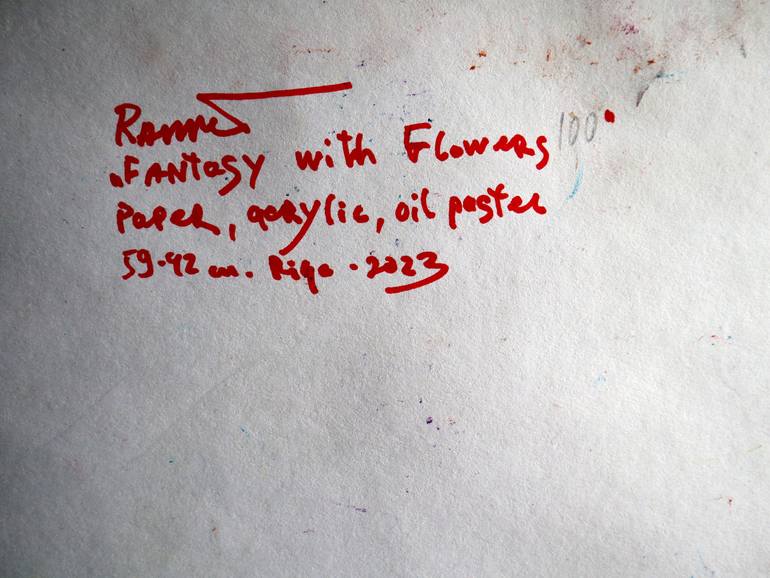 "Fantasy with Flowers 100
Paper, acrylic, oil pastel
59.42 cm. Riga. 2023